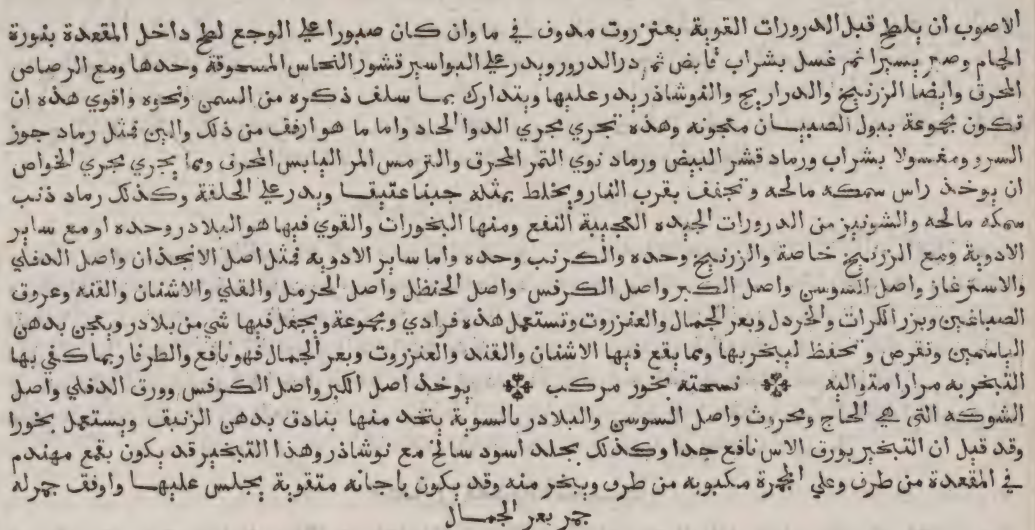 الاصوب ان يلطخ قبل الدرورات القوية بعنزروت مدوف في ما وان كان صبورا علي الوجع لطخ داخل المقعدة بنورة
الحمام وصبر يسيرا ثم غسل بشراب قابض ثم در الدرور ويدر علي البواسير قشور النحاس المسحوقة وحدها ومع الرصاص
المحرق وايضا الزرنيخ والدراريج والنوشاذر يدر عليها ويتدارك بما سلف ذكره من السمن ونحوه واقوي هذه ان
تكون مجموعة ببول الصبيان معجونه وهذه تجري مجري الدوا الحاد واما ما هو ارفق من ذلك والين فمثل رماد جوز
السرو ومغسولا بشراب ورماد قشر البيض ورماد نوي التمر المحرق والترمس المر اليابس المحرق ومما يجري مجري الخواص
ان يوخذ راس سمكه مالحه وتجفف بقرب النار ويخلط بمثله جبنا عتيقا ويدر علي الحلقة وكذلك رماد ذنب
سمكه مالحه والشونيز من الدرورات الجيده العجيبة النفع ومنها البخورات والقوي فيها هو البلادر وحده او مع ساير
الادوية ومع الزرنيخ خاصة والزرنيخ وحده والكرنب وحده واما ساير الادويه فمثل اصل الانجذان واصل الدفلي
والاسترغاز واصل السوسن واصل الكبر واصل الكرفس واصل الحنظل واصل الحرمل والقلي والاشنان والقنه وعروق
الصباغين وبزر الكراث والخردل وبعر الجمال والعنزروت وتستعمل هذه فرادي ومجموعة ويجعل فيها شي من بلادر ويعجن بدهن
الياسمين وتقرص وتحفظ ليبخر بها ومما يقع فيها الاشنان والقنه والعنزروت وبعر الجمال فهو نافع والطرفا ربما كفي بها
التبخر به مرارا متواليه نسخته بخور مركب يوخذ اصل الكبر واصل الكرفس وورق الدفلي واصل
الشوكه التي هي الحاج ومحروث واصل السوسن والبلادر بالسوية يتخد منها بنادق بدهن الزنبق ويستعمل بخورا
وقد قيل ان التبخير بورق الاس نافع جدا وكذلك بجلد اسود سالخ مع نوشاذر وهذا التبخير قد يكون بقمع مهندم
في المقعدة من طرف وعلي المجمرة مكبوبه من طرف ويبخر منه وقد يكون باجانه مثقوبة يجلس عليها واوفق جمر له
جمر بعر الجمال